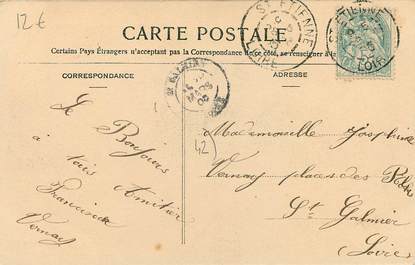 12€
CARTE POSTALE
Certains Pays Étrangers n'acceptant pas la Correspondance de ce côté, se renseigner à la
CORRESPONDANCE
ADRESSE
ST-ETIENNE
LOIRE
ST-ETIENNE
LOIRE
ST GALMIER
MARS
05
Le Bonjours
à tois Amitier
Francisca
Vernay
42
Mademoiselle Josephine
Vernay place des
St Galmier
Loire